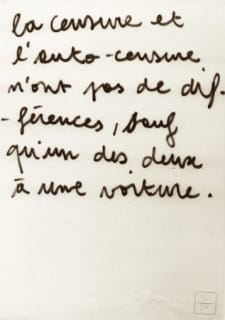 la censure et
l'auto-censure
n'ont pas de dif-
-férences, sauf
qu'un des deux
à une voiture.